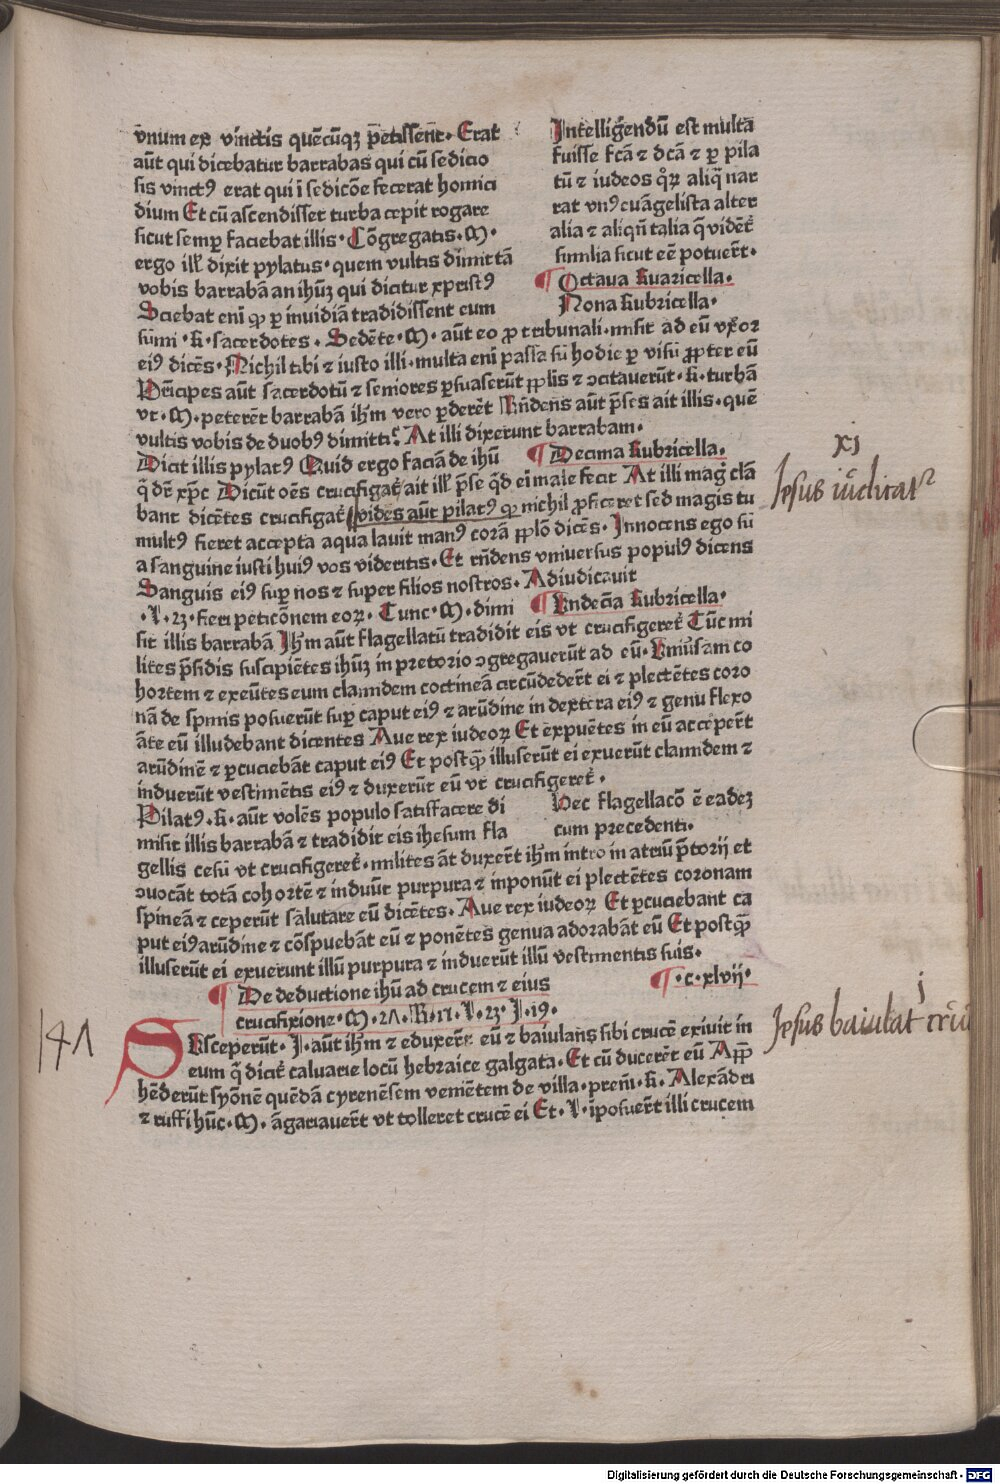 vnum ex vinctis quēcūqꝫ p̄etissent. Erat
aūt qui dicebatur barrabas qui cū sedicio
sis vinctꝰ erat qui ī sedicōe fecerat homici
dium Et cū ascendisset turba cepit rogare
sicut semꝑ faciebat illis. Cōgregatis. M.
ergo ill̄ dixit pylatus. quem vultis dimittā
vobis barrabā an ihūꝫ qui dicitur xpristꝰ
Sciebat enī ꝙ ꝑ inuidiā tradidissent eum
Intelligēndū est multa
fuisse fcā ⁊ dcā ⁊ ꝑ pila
tū ⁊ iudeos qͦꝝ aliq̄ nar
rat vnꝰ euāgelista alter
alia ⁊ aliqn̄ talia q̄ vident̄
similia sicut eē potuerūt.
¶ Octaua Rubricella.
Nona Rubricella.
sūmi. R. sacerdotes. Sedēte. M. aūt eo ꝓ tribunali. misit ad eū vxor
eiꝰ dicēs. Nichil tibi ⁊ iusto illi. multa enī passa sū hodie ꝑ visū ꝓpter eū
Prīcipes aūt sacerdotū ⁊ seniores ꝑsuaserūt pplis ⁊ ↄcitauerūt. R. turbā
vt. M. peterēt barrabā ihm̄ vero ꝑderēt Rn̄dens aūt p̄ses ait illis. quē
vultis vobis de duobꝰ dimitti. At illi dixerunt barrabam.
Dicit illis pylatꝰ Quid ergo faciā de ihū ¶ Decima Rubricella.
q̄ dr̄ xp̄c Dicūt oēs crucifigat̄ ait ill̄ p̄se qͥd ei male fecit At illi magͥ clā
bant dicētes crucifigat̄ vides aūt pilatꝰ ꝙ nichil ꝓficeret sed magis tu
multꝰ fieret accepta aqua lauit manꝰ corā pplō dicēs. Innocens ego sū
a sanguine iusti huiꝰ vos videritis. Et rn̄dens vniuersus populꝰ dicens
Sanguis eiꝰ suꝑ nos ⁊ super filios nostros. Adiudicauit
. L. 23. fieri peticōnem eoꝝ. Tunc. M. dimi ¶ Vndecīa Rubricella.
sit illis barrabā Ihm̄ aūt flagellatū tradidit eis vt crucifigeret̄ Tūc mi
lites p̄sidis suscipiētes ihūꝫ in pretorio ↄgregauerūt ad eū. Vniūsam co
hortem ⁊ exeūtes eum clamidem coctineā circūdederūt ei ⁊ plectētes coro
nā de spinis posuerūt suꝑ caput eiꝰ ⁊ arūdine in dextera eiꝰ ⁊ genu flexo
āte eū illudebant dicentes Aue rex iudeoꝝ Et expuētes in eū acceperūt
arūdinē ⁊ ꝑcuciebāt caput eiꝰ Et postꝙ̄ illuserūt ei exuerūt clamidem ⁊
induerūt vestimētis eiꝰ ⁊ duxerūt eū vt crucifigeret̄.
Pilatꝰ. R. aūt volēs populo satisfacere di
misit illis barrabā ⁊ tradidit eis ihesum fla
Hec flagellacō ē eadeꝫ
cum precedenti.
gellis cesū vt crucifigeret̄. milites āt duxerūt ihm̄ intro in atriū p̄torij et
ↄuocāt totā cohortē ⁊ induūt purpura ⁊ inponūt ei plectētes coronam
spineā ⁊ ceperūt salutare eū dicētes. Aue rex iudeoꝝ Et ꝑcuciebant ca
put eiꝰ arūdine ⁊ cōspuebāt eū ⁊ ponētes genua adorabāt eū Et postꝙ̄
illuserūt ei exuerunt illū purpura ⁊ induerūt illū vestimentis suis.
¶ De deductione ihū ad crucem ⁊ eius ¶ .c.xlvij.
crucifixione. M. 27. R. 15. L. 23. J. 19.
SVsceperūt. J. aūt ihm̄ ⁊ eduxerūt eū ⁊ baiulans sibi crucē exiuit in
eum q̄ dicit̄ caluarie locū hebraice galgata. Et cū ducerēt eū App̄
hēderūt syōnē quēdā cyrenēsem veniētem de villa. prem̄. R. Alexādri
⁊ ruffi hūc. M. āgariauerūt vt tolleret crucē ei Et. L. īposuerūt illi crucem
xj
Jesus iudicatᷣ
j
Jesus baiulat crucē
147
Digitalisierung gefördert durch die Deutsche Forschungsgemeinschaft - DFG